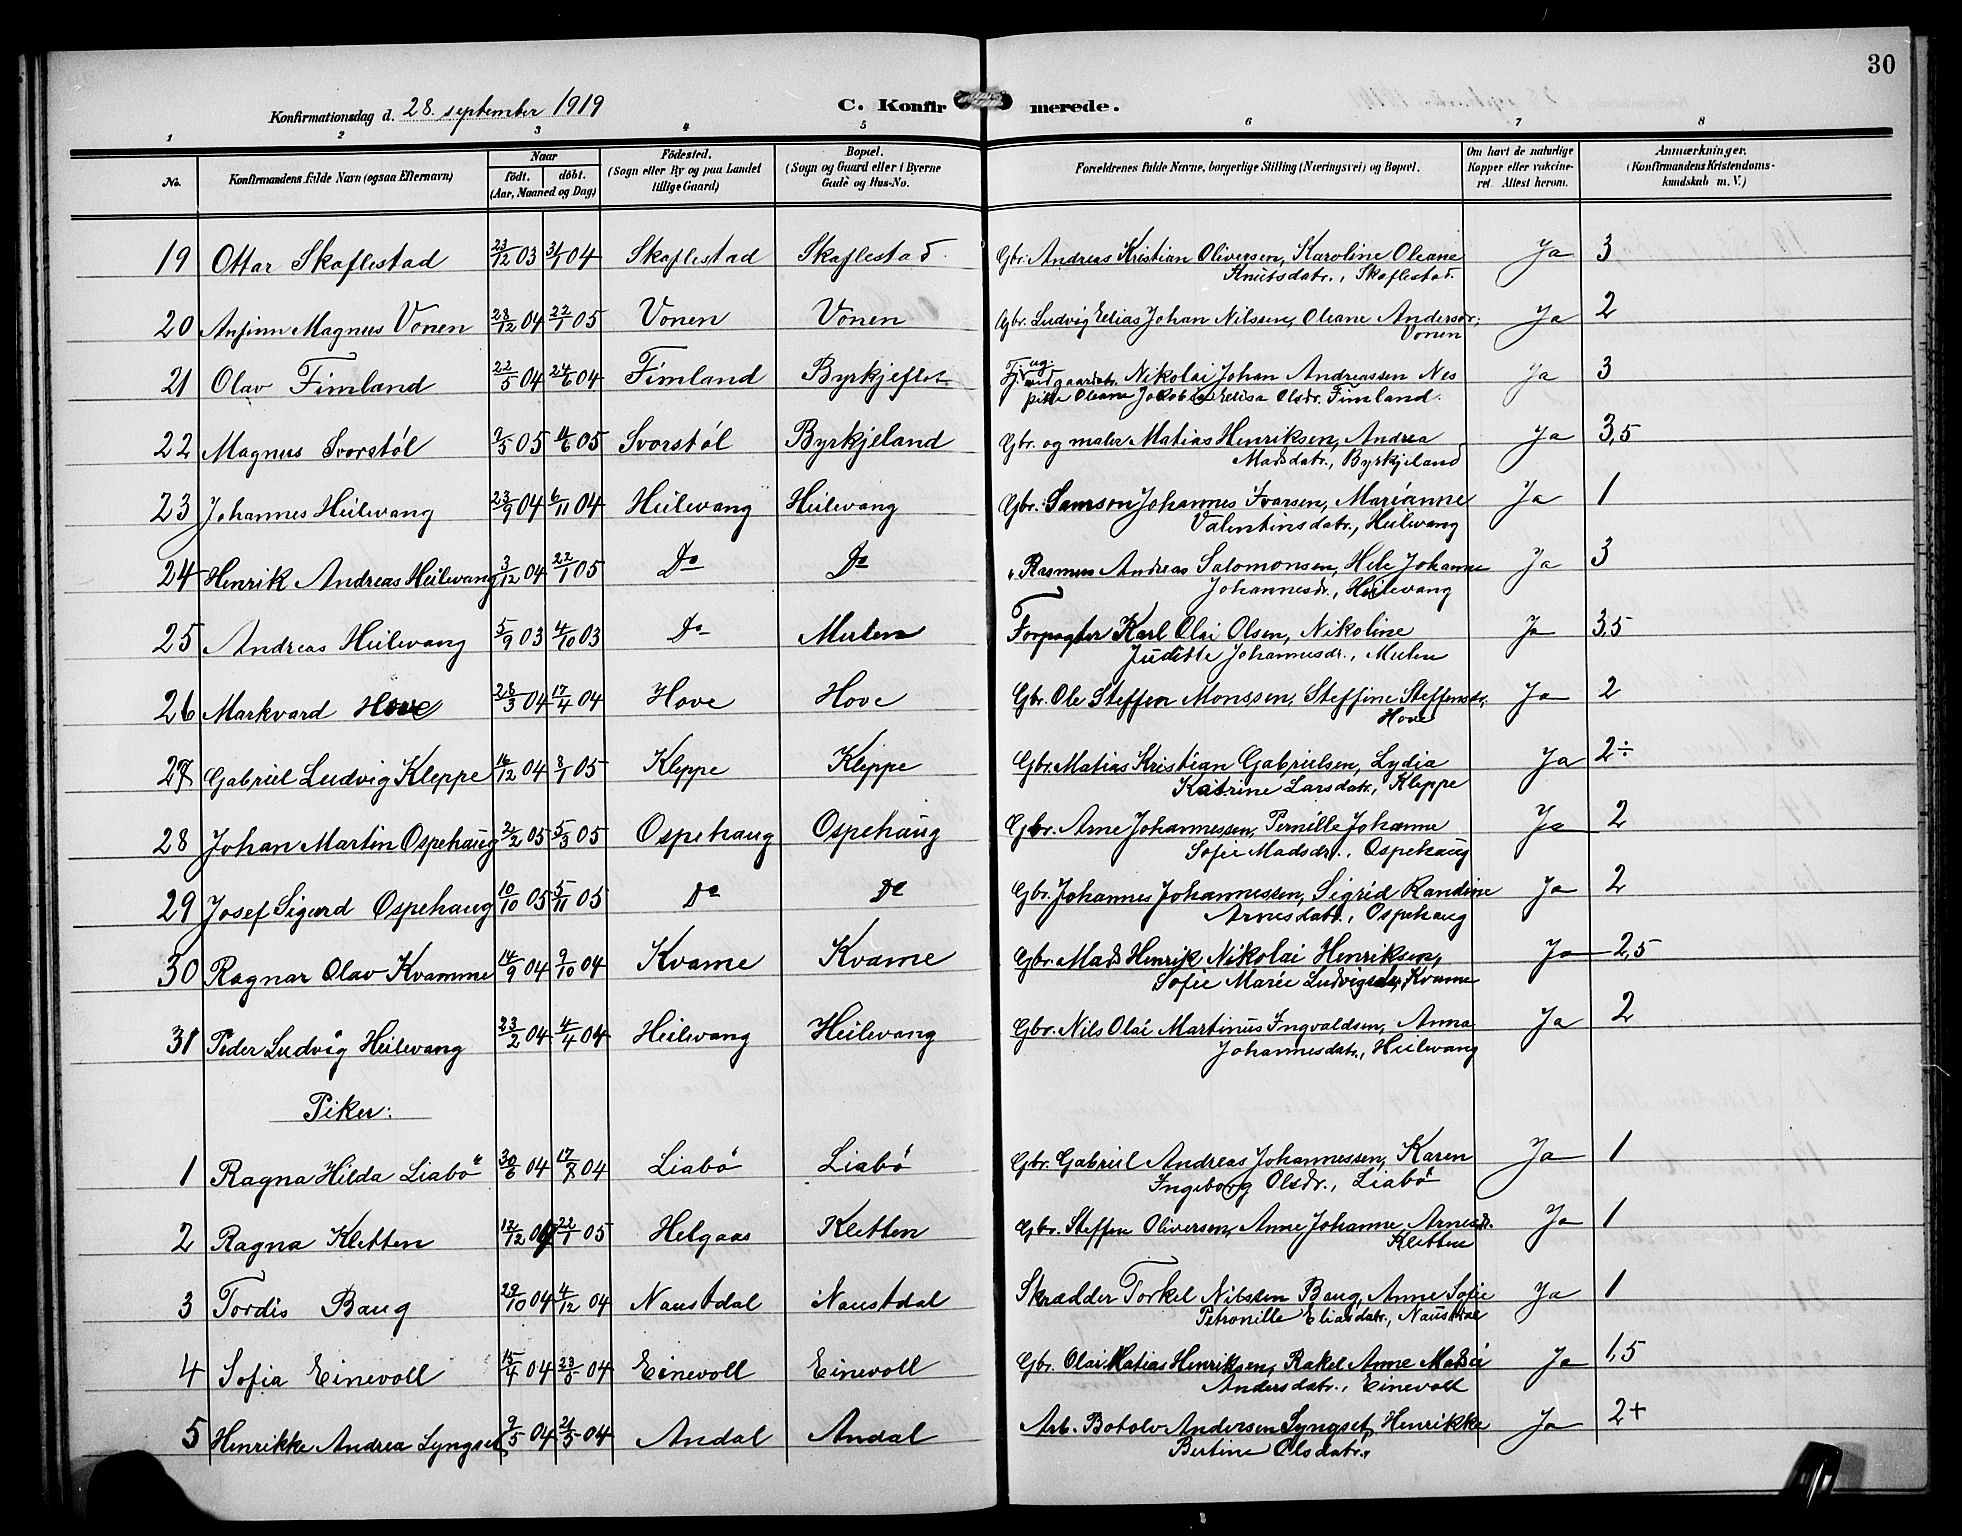 30
Konfirmationsdag d. 28. september 1919
C. Konfirmerede.
1 2 3 4 5 6 7 8
No.
Konfirmandens fulde Navn (ogsaa Efternavn)
Naar
født. døbt.
(Aar, Maaned og Dag)
Fødested.
(Sogn eller By og paa Landet
tillige Gaard)
Bopæl.
(Sogn og Gaard eller i Byerne
Gade og Hus-No.
Forældrenes fulde Navne, borgerlige Stilling (Næringsvei) og Bopæl.
Om havt de naturlige
Kopper eller vakcine-
ret. Attest herom.
Anmærkninger.
(Konfirmandens Kristendoms-
kundskab m. V.)
19 Ottar Skaflestad 23/12 03 31/1 04 Skaflestad Skaflestad Gbr. Andreas Kristian Oliversen, Karoline Oleane Ja 3
Knutsdatr., Skaflestad.
20 Anfinn Magnus Vonen 28/12 04 22/1 05 Vonen Vonen Gbr. Ludvig Elias Johan Nilssen, Oleane Andersdr., Ja 2
Vonen
21 Olav Fimland 22/5 04 24/6 04 Fimland Byrkjeflot Nikolai Johan Andreassen Nes Ja 3
Oleane Jakobine Elisa Olsdr. Fimland.
22 Magnus Svorstøl 9/5 05 11/6 05 Svorstøl Byrkjeland Gbr. og maler Matias Henriksen, Andrea Ja 3,5
Madsdatr., Byrkjeland
23 Johannes Heilevang 23/9 04 6/11 04 Heilevang Heilevang Gbr. Samson Johannes Ivarsen, Marianne Ja 1
Valentinsdatr., Heilevang
24 Henrik Andreas Heilevang 3/12 04 22/1 05 Do Do " Rasmus Andreas Salomonsen, Hele Johanne Ja 3
Johannesdr., Heilevang
25 Andreas Heilevang 5/9 03 4/10 03 Do Mulen Forpagter Karl Olai Olsen, Nikoline Ja 3,5
Juditte Johannesdr., Mulen
26 Markvard Hove 28/3 04 17/4 04 Hove Hove Gbr. Ole Steffen Monssen, Steffine Steffensdr., Ja 2
Hove
27 Gabriel Ludvig Kleppe 16/12 04 8/1 05 Kleppe Kleppe Gbr. Matias Kristian Gabrielsen, Lydia Ja 2÷
Katrine Larsdatr., Kleppe
28 Johan Martin Ospehaug 2/2 05 5/3 05 Ospehaug Ospehaug Gbr. Arne Johannessen, Pernille Johanne Ja 2
Sofie Madsdr., Ospehaug
29 Josef Sigurd Ospehaug 10/10 05 5/11 05 Do Do Gbr. Johannes Johannessen, Sigrid Randine Ja 2
Arnesdatr., Ospehaug
30 Ragnar Olav Kvamme 14/9 04 9/10 04 Kvame Kvame Gbr. Mads Henrik Nikolai Henriksen, Ja 2,5
Sofie Marie Ludvigsdr., Kvame
31 Peder Ludvig Heilevang 23/2 04 4/4 04 Heilevang Heilevang Gbr. Nils Olai Martinus Ingvaldsen, Anna Ja 2
Johannesdatr., Heilevang
Piker:
1 Ragna Hilda Liabø 30/6 04 17/7 04 Liabø Liabø Gbr. Gabriel Andreas Johannessen, Karen Ja 1
Ingeborg Olsdr., Liabø
2 Ragna Kletten 12/12 04 22/1 05 Helgaas Kletten Gbr. Steffen Oliversen, Anne Johanne Arnesdr. Ja 1
Kletten
3 Tordis Baug 29/10 04 4/12 04 Naustdal Naustdal Skrædder Torkel Nilssen Baug, Anne Sofie Ja 1
Petronille Eliasdatr., Naustdal
4 Sofia Einevoll 15/4 04 23/5 04 Einevoll Einevoll Gbr. Olai Matias Henriksen, Rakel Anne Matea Ja 1,5
Andersdatr., Einevoll
5 Henrikke Andrea Lyngset 9/5 04 21/5 04 Andal Andal Arb. Botolv Andersen Lyngset, Henrikke Ja 2+
Bertine Olsdatr.,